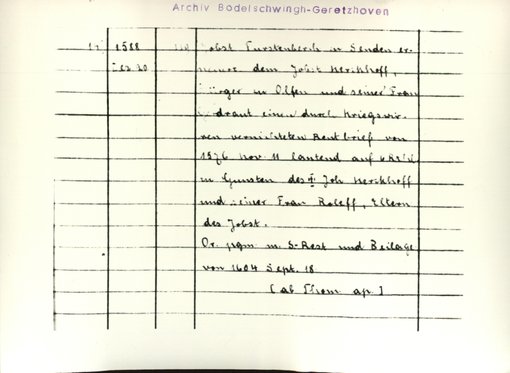 Archiv Bodelschwingh-Geretzhoven
1588 Jobst Furstenberch in Senden er-
dem Jobst Kerckhoff,
Bürger in Olfen und seiner Frau
einen durch Kriegswir-
ren vernichteten Rentbrief von
1576 Nov. 11 lautend auf
in Gunsten des Joh Kerckhoff
und seiner Frau Roleff, Eltern
des Jobst.
Or. pgm. m. S-Rest und Beilage
von 1604 Sept. 18